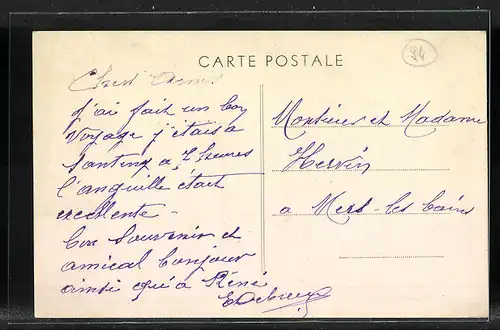 CARTE POSTALE
24
Chers Amis
j'ai fait un bon
voyage j'étais a
7 heures
l'anguille était
excellente -
Bon Souvenir et
amical bonjour
ainsi qu'a Réné
Monsieur et Madame
Hervin
a Mers-les bains